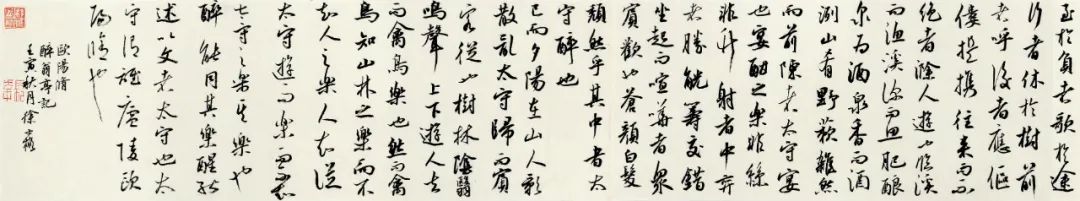 至於負者歌於途
行者休於樹前
者呼後者應傴
僂提攜往來而不
絕者滁人遊也臨溪
而漁溪深而魚肥釀
泉為酒泉香而酒
洌山肴野蔌雜然
而前陳者太守宴
也宴酣之樂非絲
非竹射者中弈
者勝觥籌交錯
坐起而喧嘩者眾
賓歡也蒼顏白髮
頹然乎其中者太
守醉也
已而夕陽在山人影
散亂太守歸而賓
客從也樹林陰翳
鳴聲上下遊人去
而禽鳥樂也然而禽
鳥知山林之樂而不
知人之樂人知從
太守遊而樂而不知
守之樂其樂也
醉能同其樂醒能
述以文者太守也太
守謂誰廬陵歐
陽脩也
歐陽脩
醉翁亭記
壬寅秋月徐